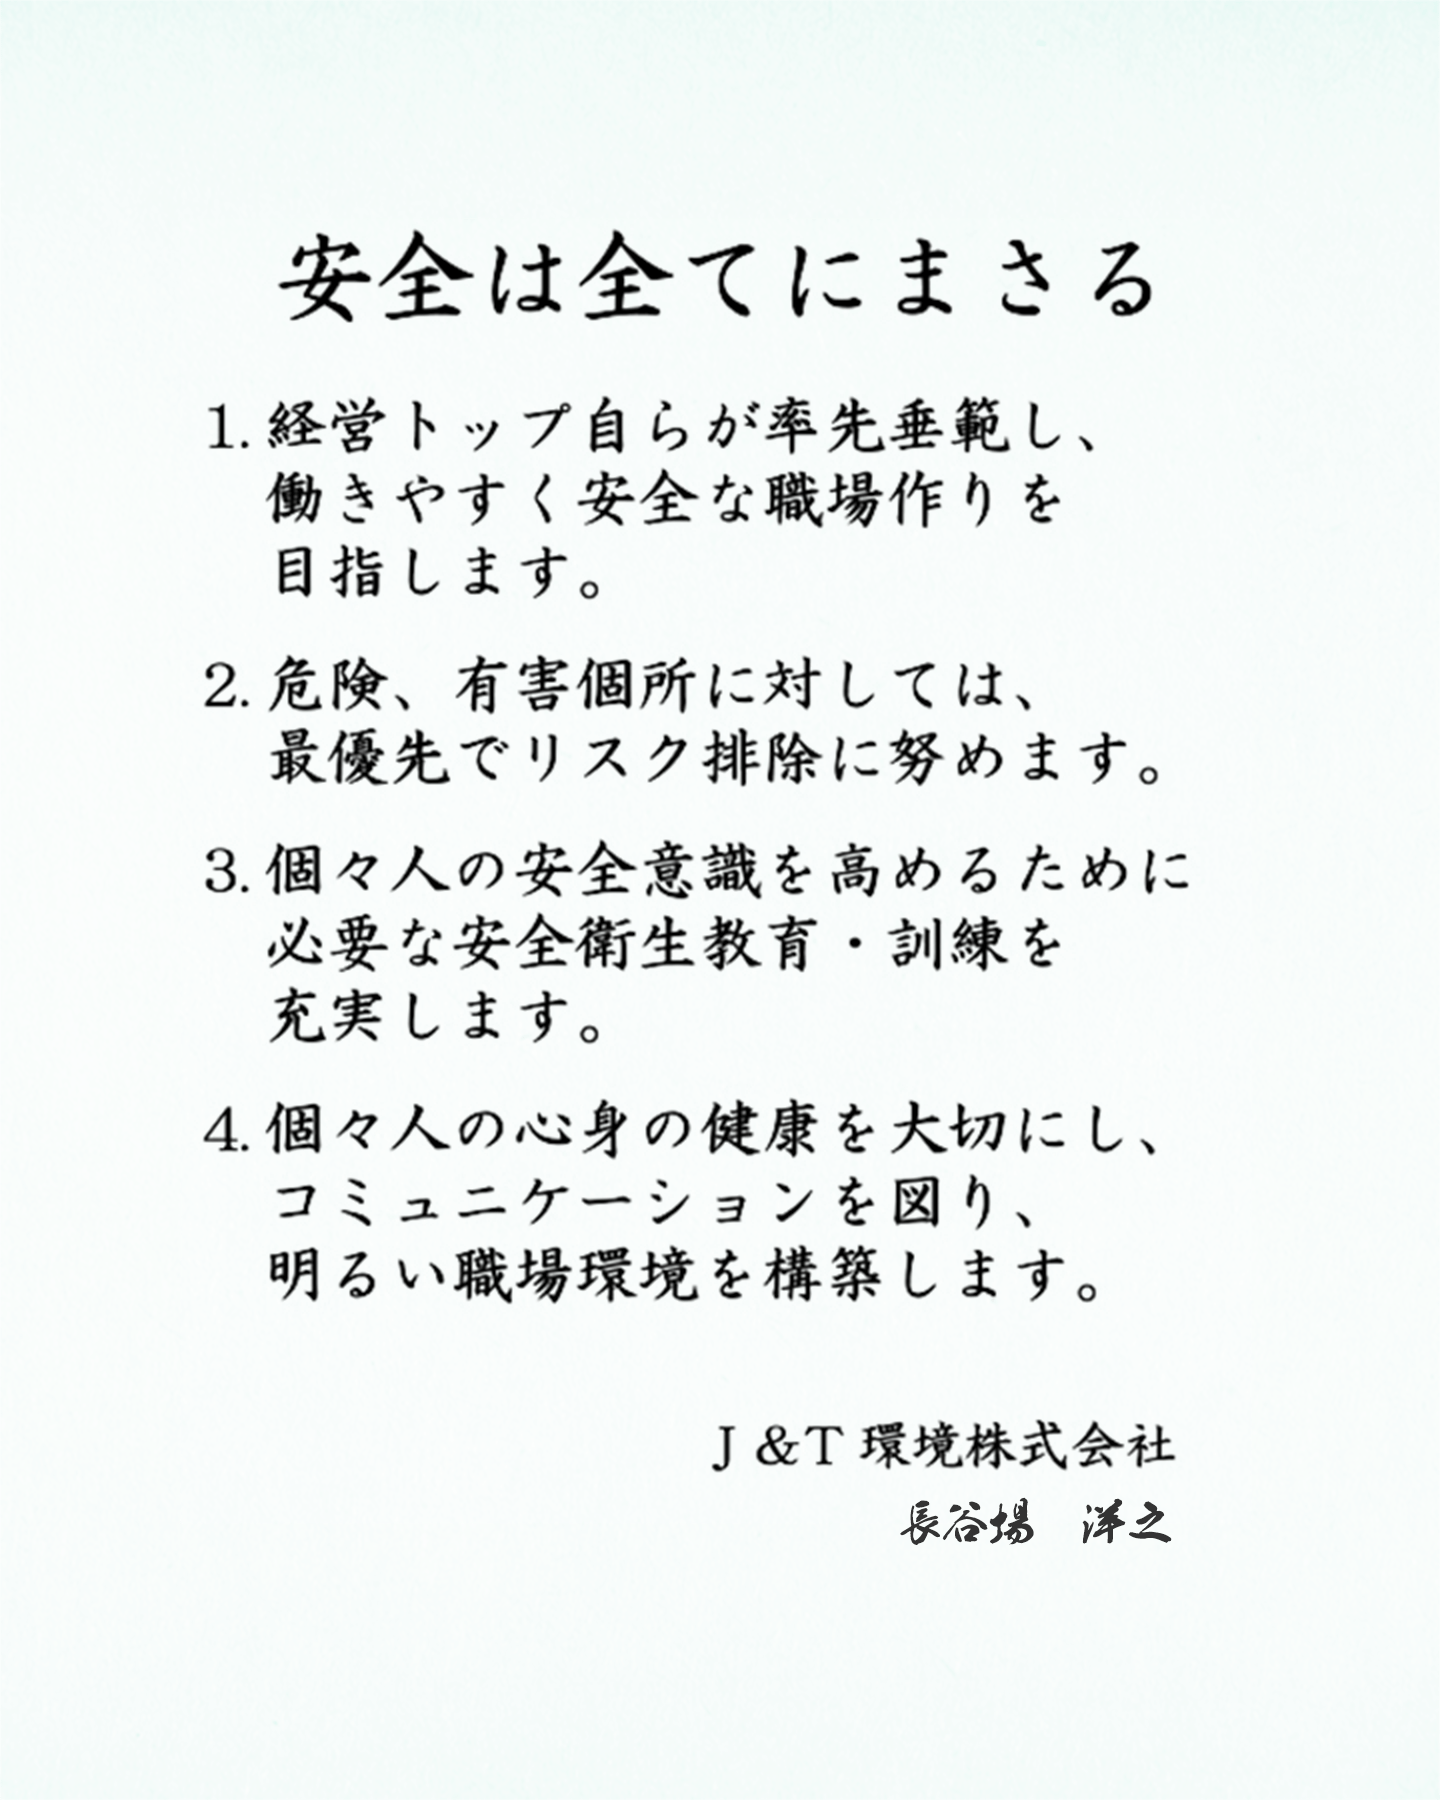 安全は全てにまさる
1. 経営トップ自らが率先垂範し、
働きやすく安全な職場作りを
目指します。
2. 危険、有害個所に対しては、
最優先でリスク排除に努めます。
3. 個々人の安全意識を高めるために
必要な安全衛生教育・訓練を
充実します。
4. 個々人の心身の健康を大切にし、
コミュニケーションを図り、
明るい職場環境を構築します。
J&T環境株式会社
長谷場 洋之